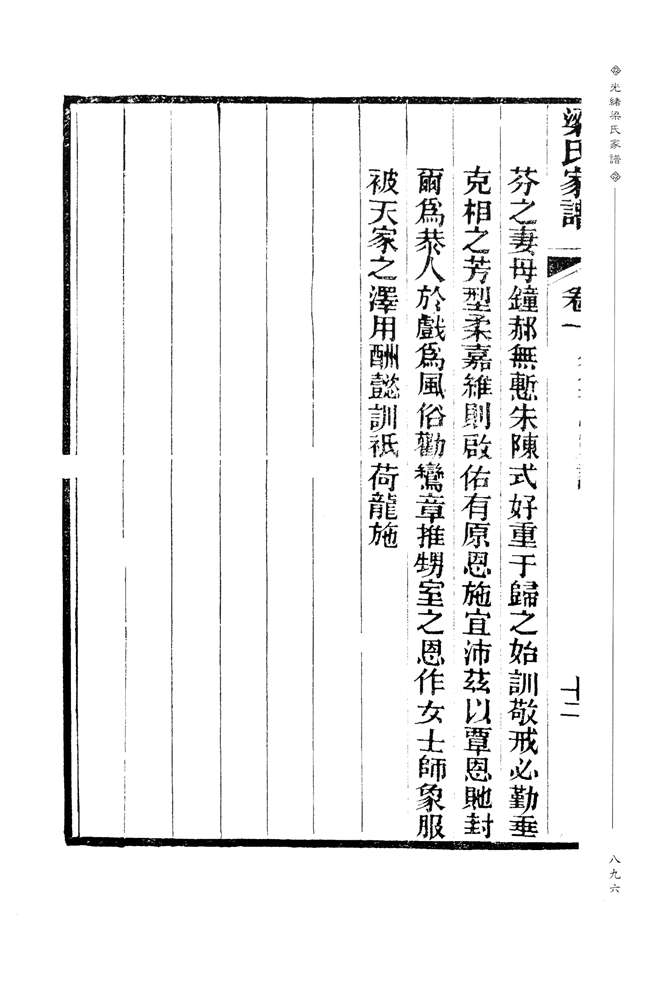 光緒梁氏家譜
八九六
梁氏家譜
卷一
十二
芬之妻母鐘郝無慙朱陳式好重于歸之始訓敬戒必勤垂
克相之芳型柔嘉維則啟佑有原恩施宜沛茲以覃恩貤封
爾爲恭人於戲爲風俗勸鸞章推甥室之恩作女士師象服
被天家之澤用酬懿訓祇荷龍施